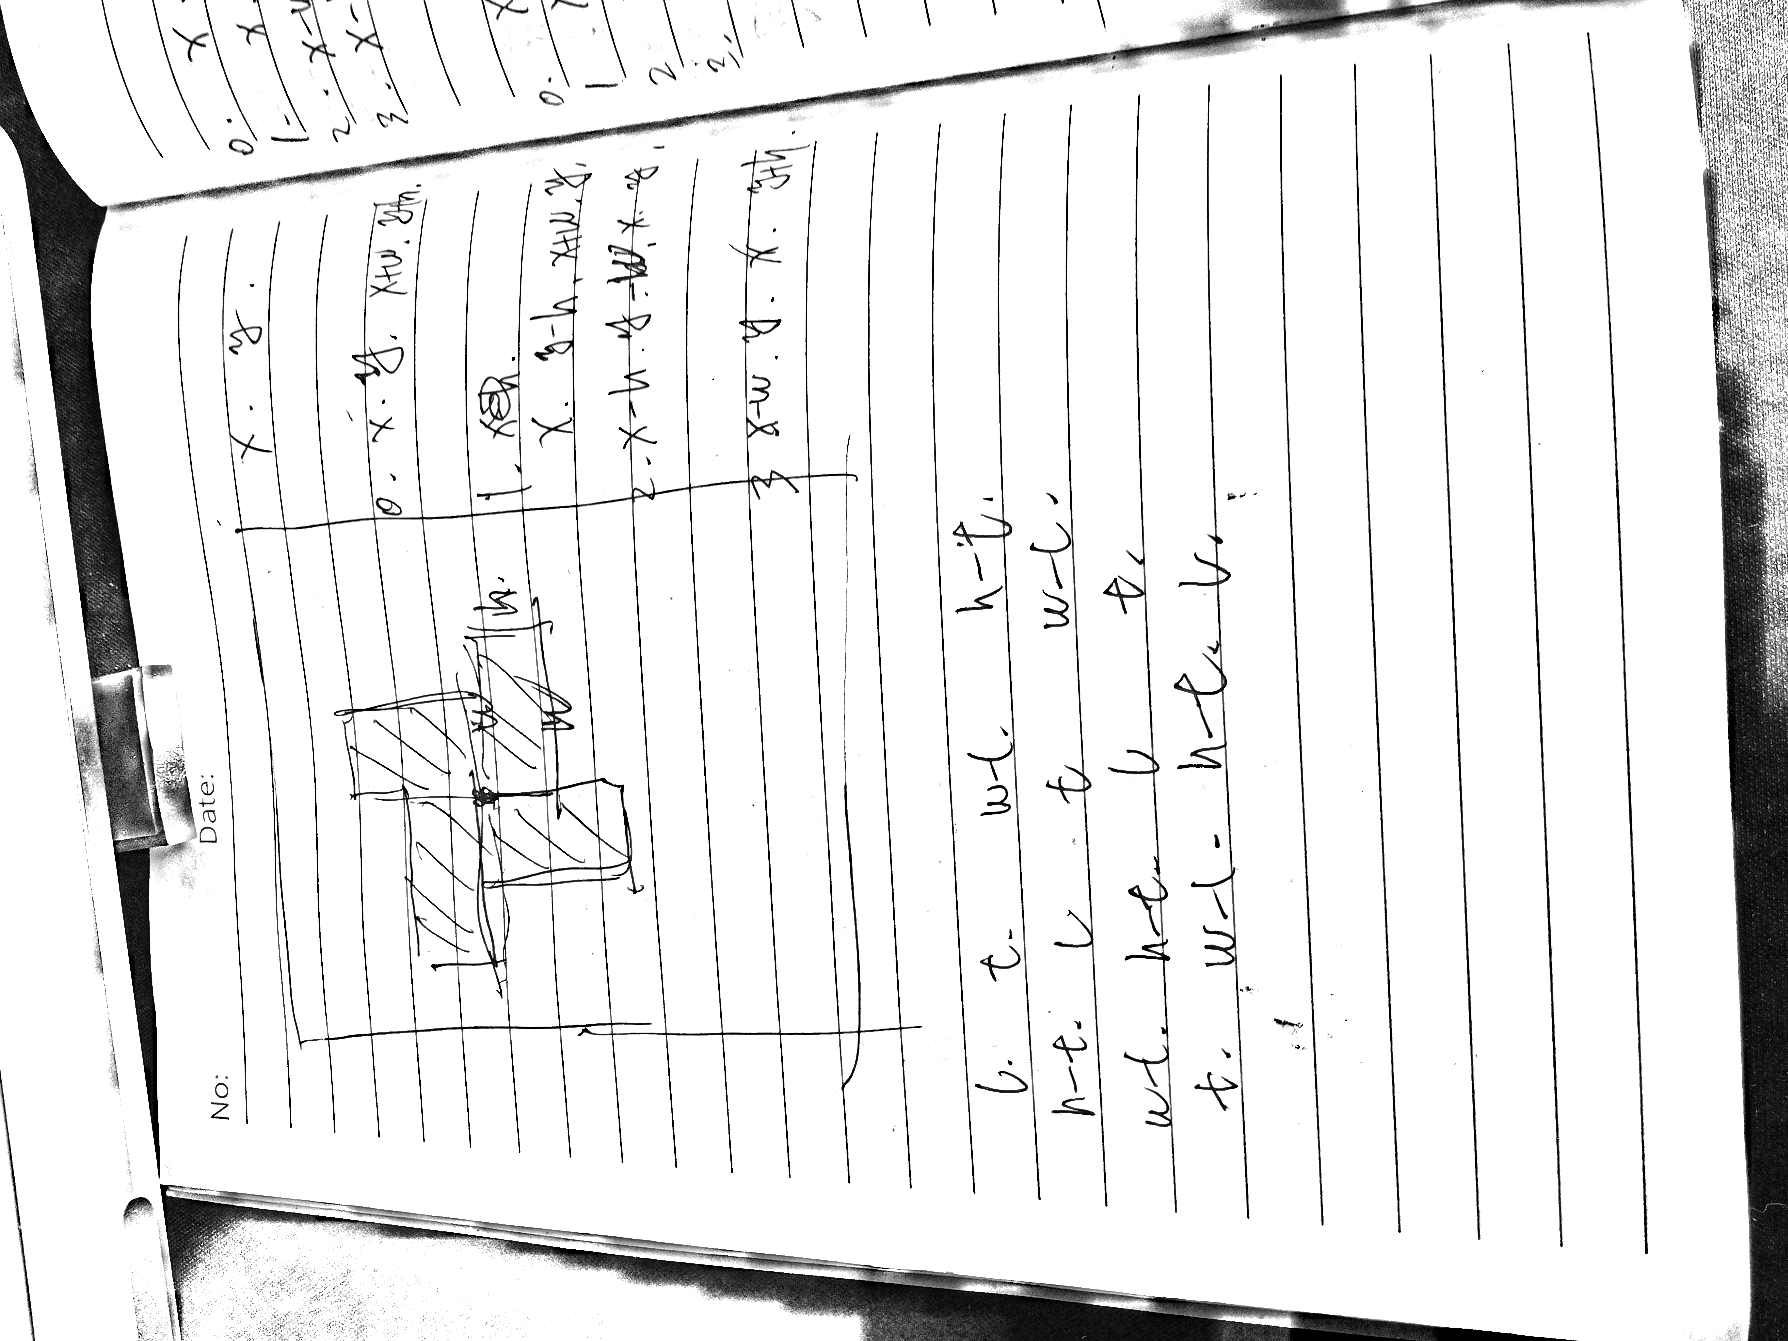 No:
Date:
x. y.
0. x. y. x+w. y+h.
1.
x. y-h. x+w. y.
2. x-h. y-w. x. y.
3 x-w. y. x. y+h.
h.
w
l. t. w-l. h-t.
h-t. l t w-l.
w-l. h-t. l t.
t. w-l. h-t. l.
0. x
1. x
2. x-w
3. x-
0. x
1
2
3.